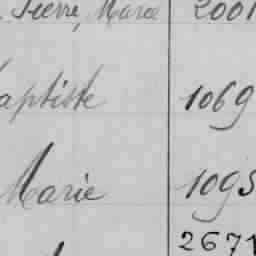 Pierre, Marie 2001
aptiste 1069
Marie 1095
2671